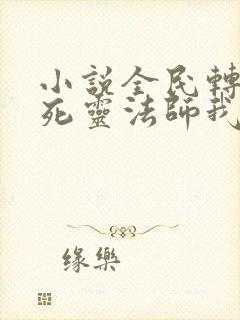 小說全民轉
死靈法師我
缘樂